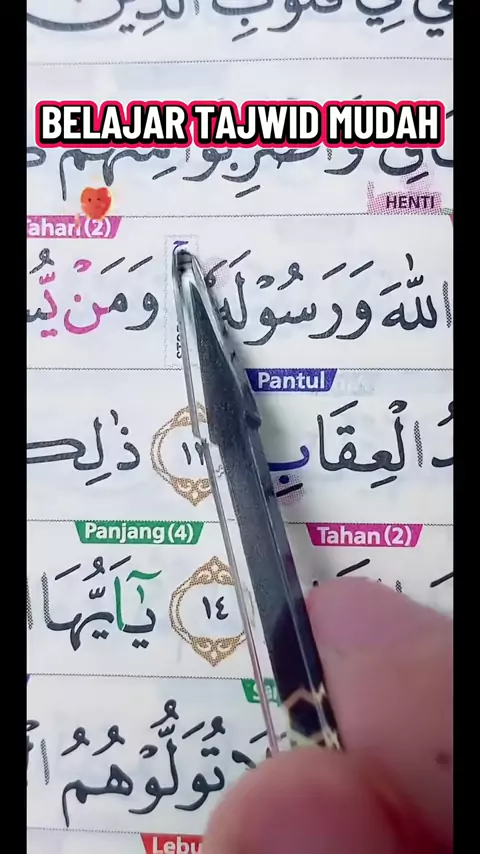 فِي قُلُوبِ الَّذِينَ
BELAJAR TAJWID MUDAH
وَاضْرِبُوا مِنْهُمْ
HENTI
Tahan (2)
اللّٰهَ وَرَسُوْلَهٗ ۚ وَمَنْ يُّ
Pantul
الْعِقَابِ ١٣ ذٰلِكَ
Panjang (4)
Tahan (2)
١٤ يٰٓاَيُّهَا
تُوَلُّوْهُمُ